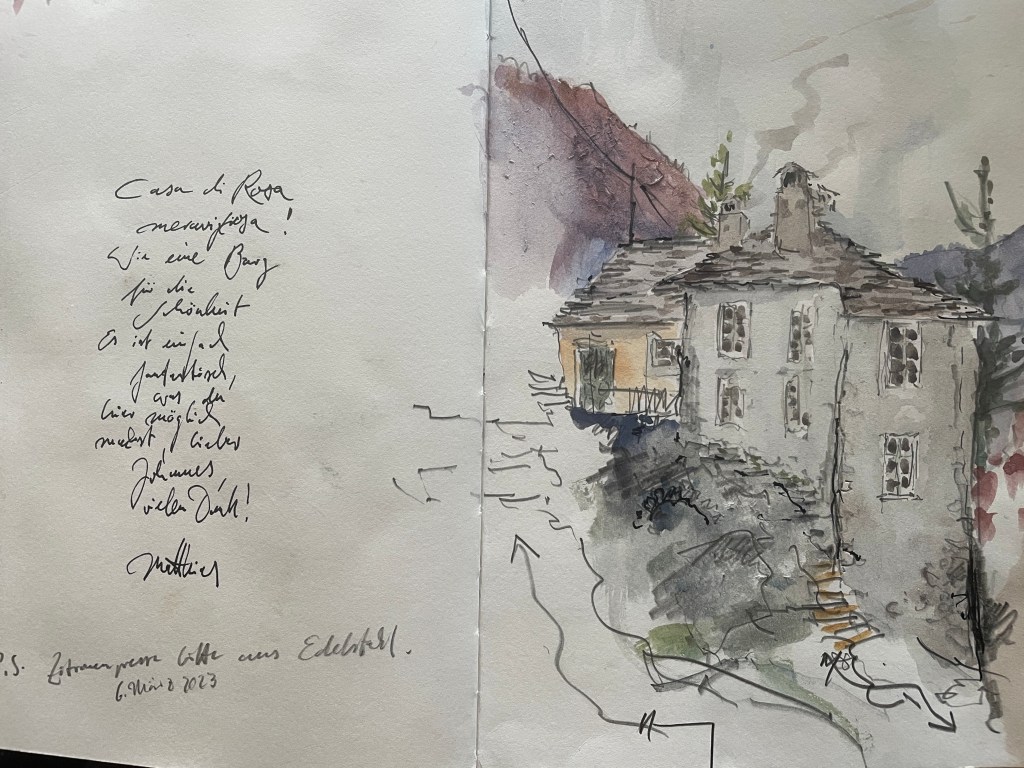 Casa di Rosa
meravigliosa!
Wie eine Burg
für die
Schönheit
Es ist einfach
fantastisch,
was du
hier möglich
machst, lieber
Johannes,
vielen Dank!
Matthias
P.S. Zitronenpresse bitte aus Edelstahl.
6. März 2023